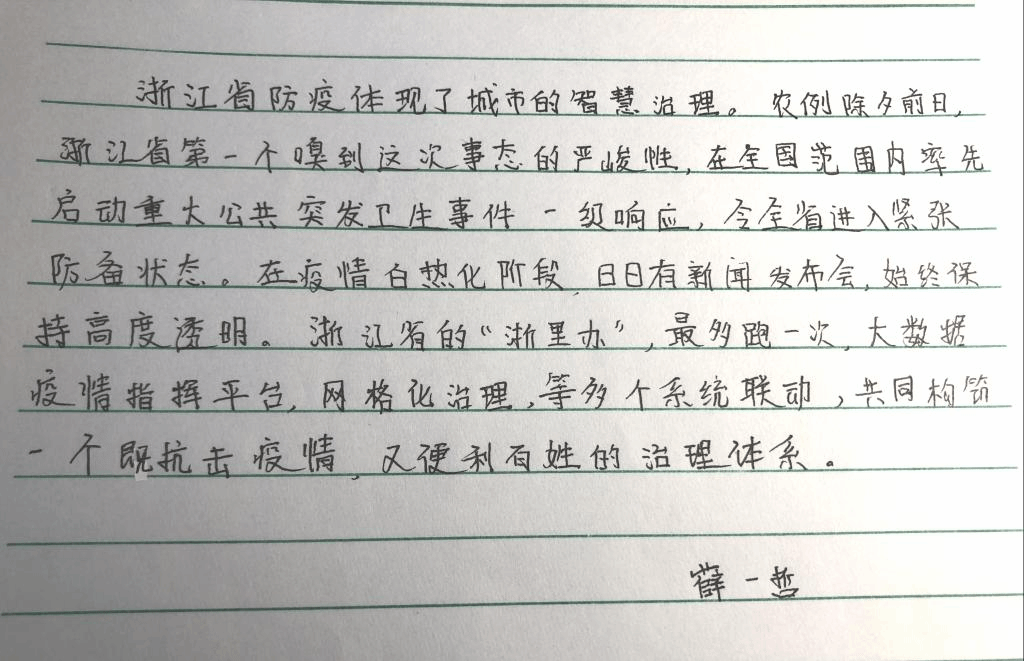 浙江省防疫体现了城市的智慧治理。农例除夕前日,
浙江省第一个嗅到这次事态的严峻性,在全国范围内率先
启动重大公共突发卫生事件一级响应,令全省进入紧张
防备状态。在疫情白热化阶段,日日有新闻发布会,始终保
持高度透明。浙江省的“浙里办”,最多跑一次,大数据
疫情指挥平台,网格化治理,等多个系统联动,共同构筑
一个既抗击疫情,又便利百姓的治理体系。
薛一哲